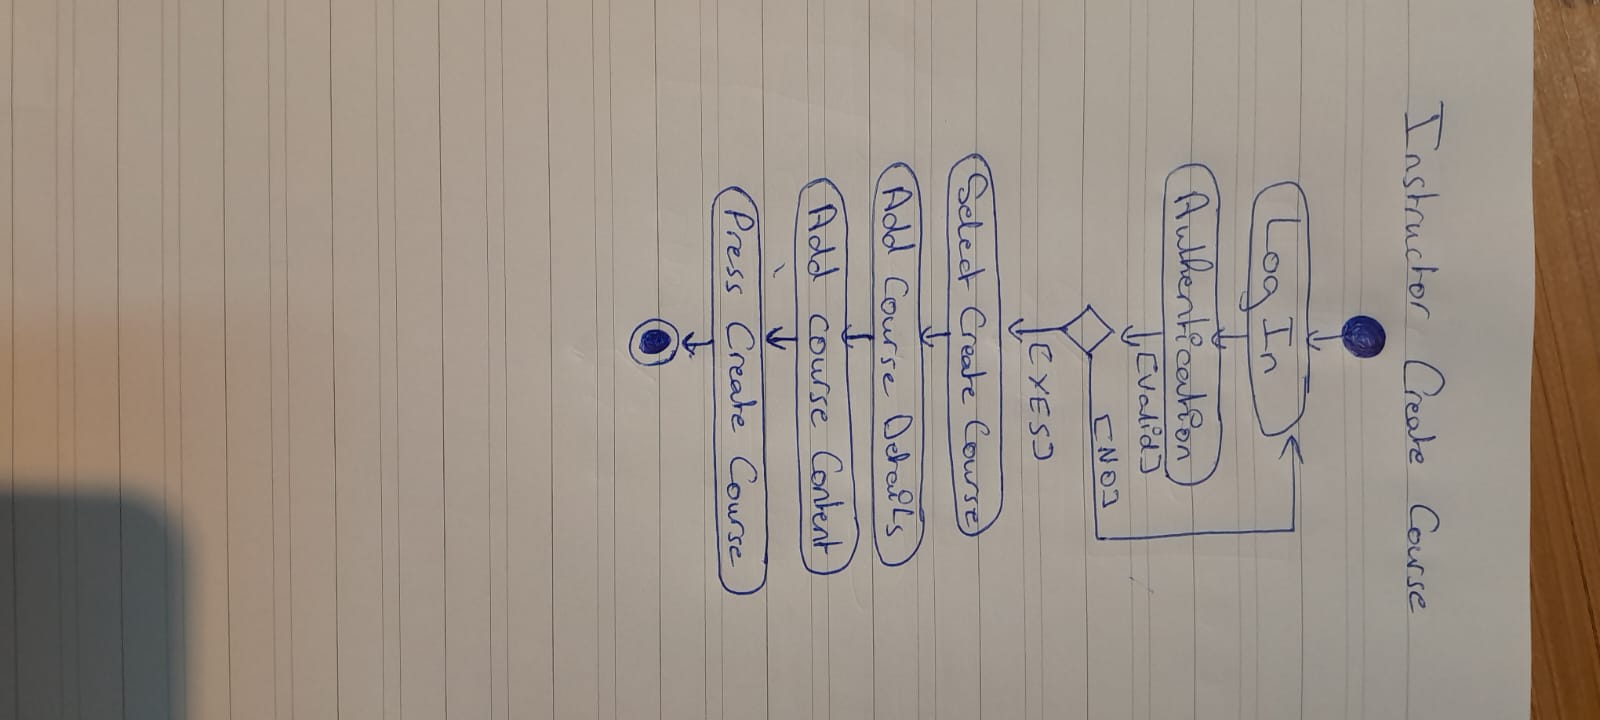 Instructor Create Course
Log In
Authentication
[Valid]
[NO]
[YES]
Select Create Course
Add Course Details
Add course Content
Press Create Course